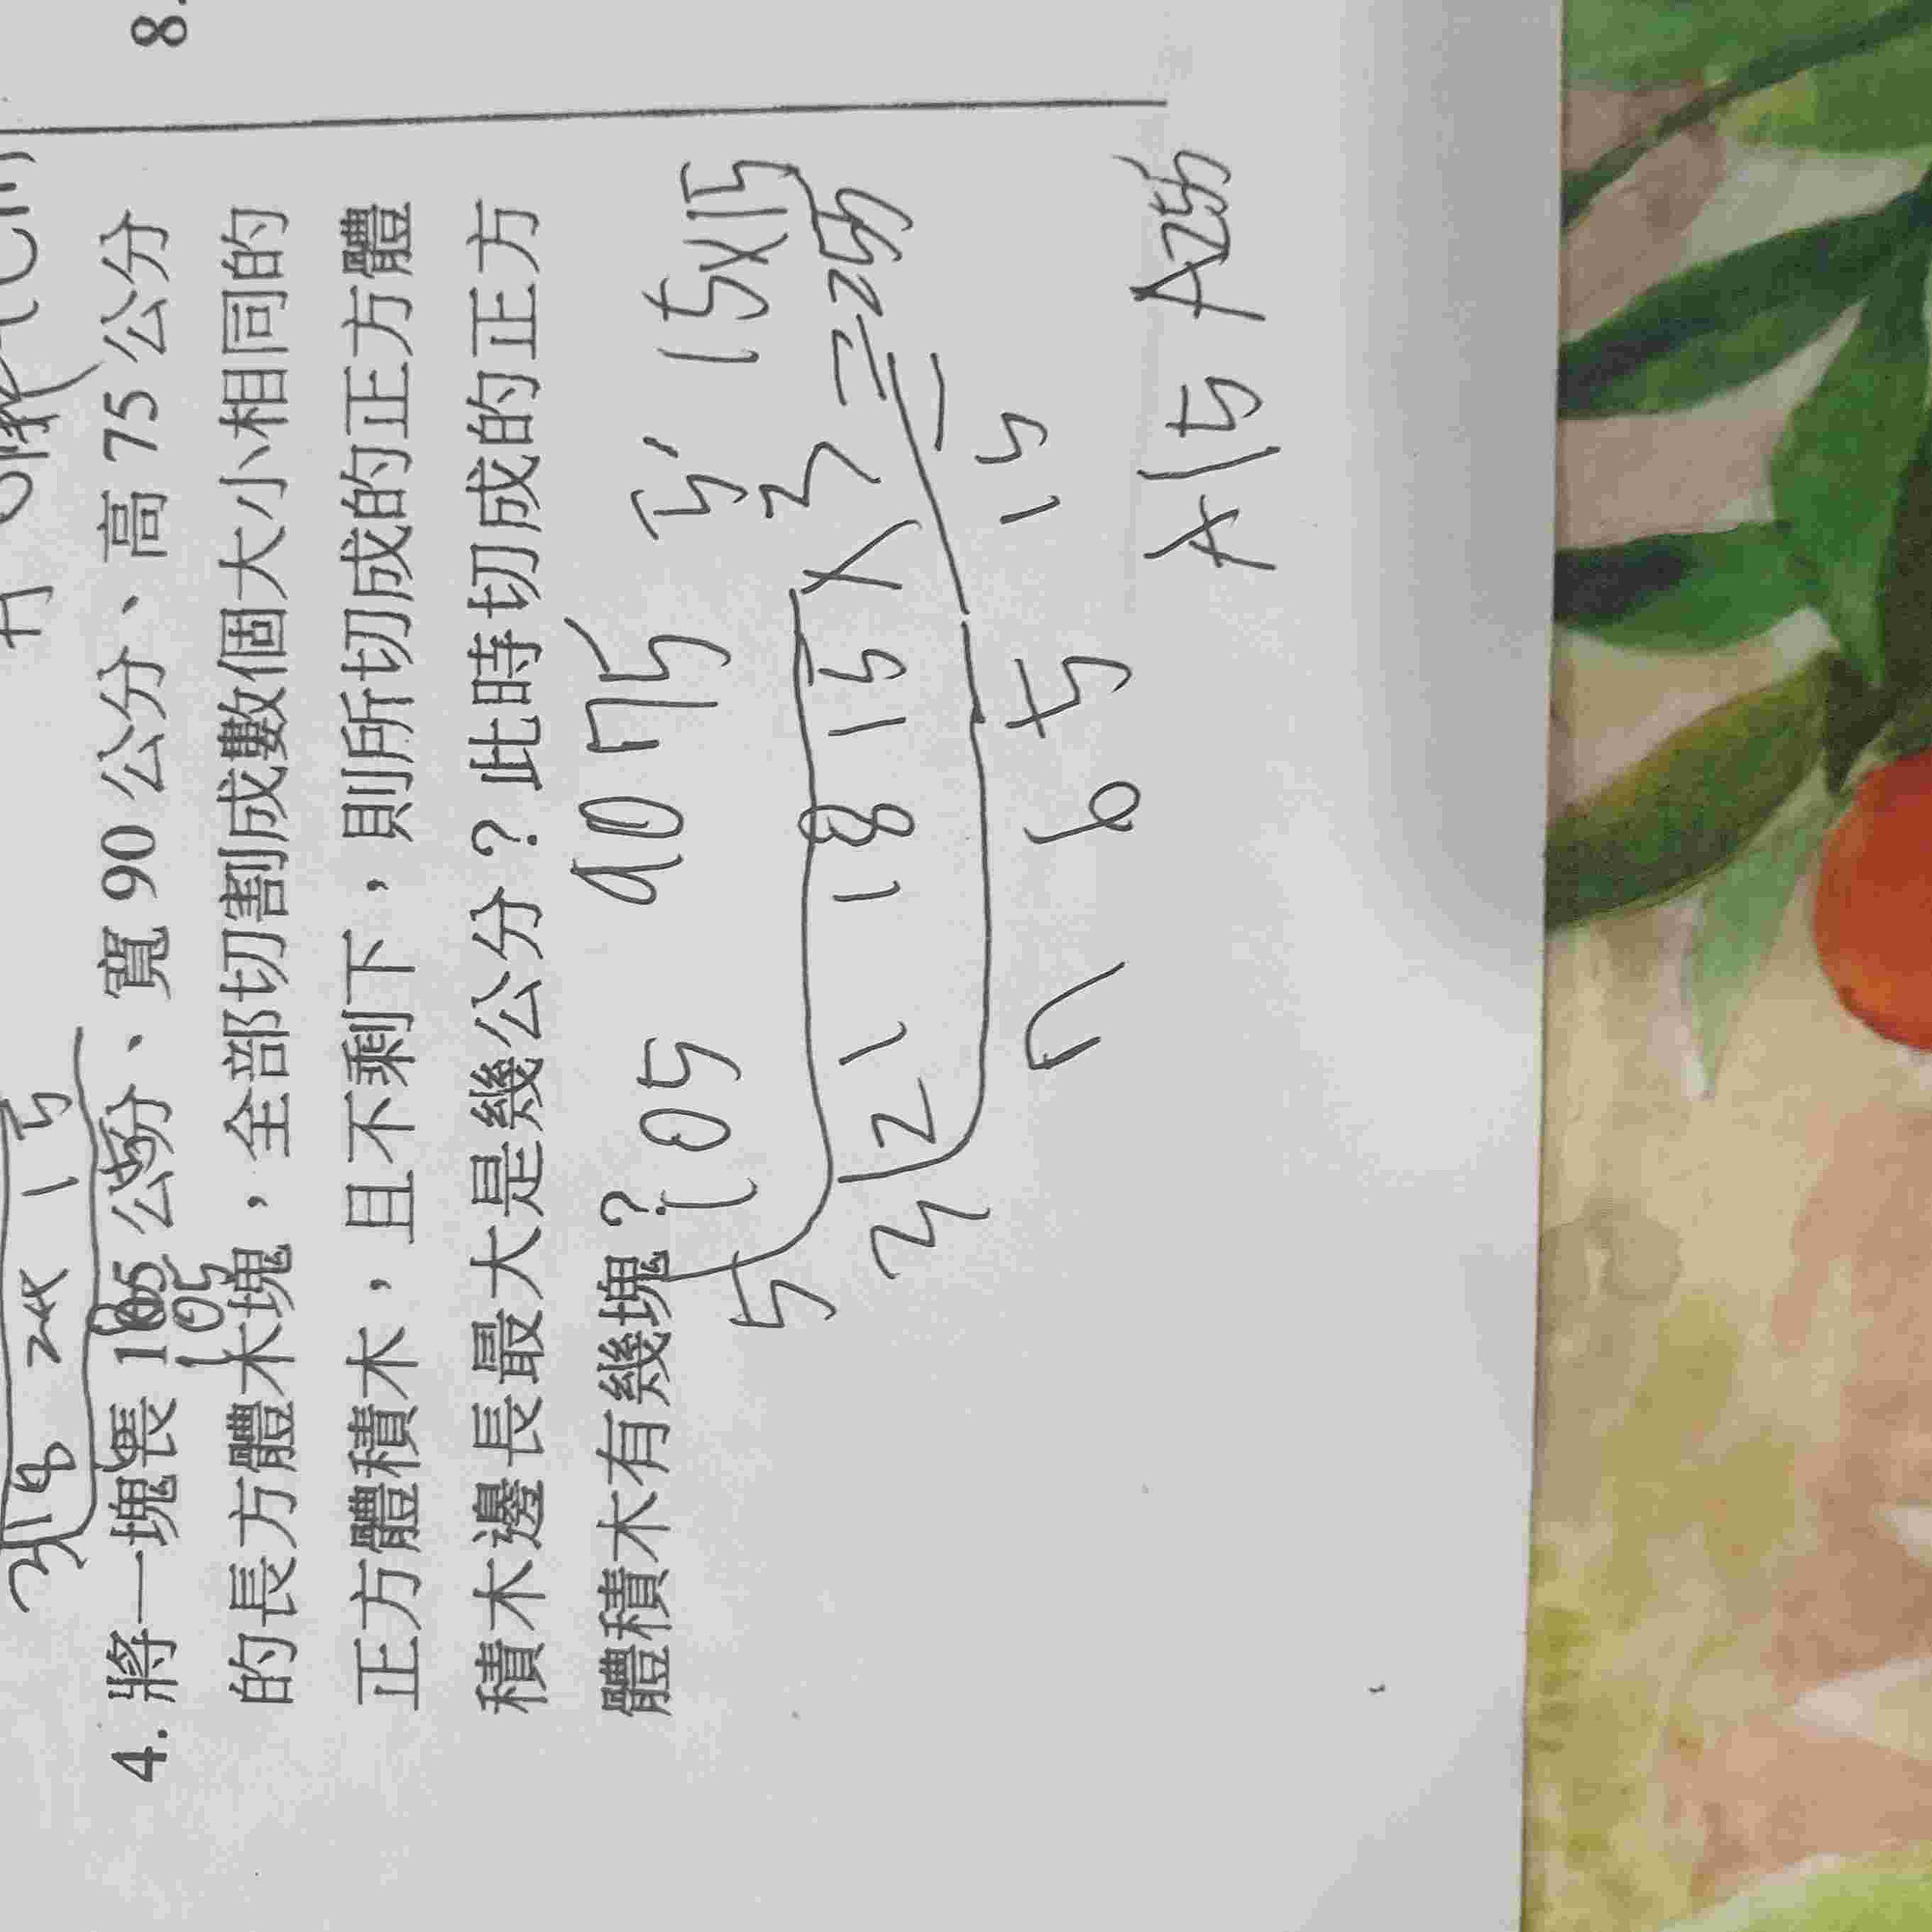 8.
3 18 24 15
4. 將一塊長 105 公分、寬 90 公分、高 75 公分
105
的長方體木塊,全部切割成數個大小相同的
正方體積木,且不剩下,則所切成的正方體
積木邊長最大是幾公分?此時切成的正方
體積木有幾塊?
105 90 75 5 15x15
5
3 21 18 15 x 3 = 255
7 6 5 15
A15 A255